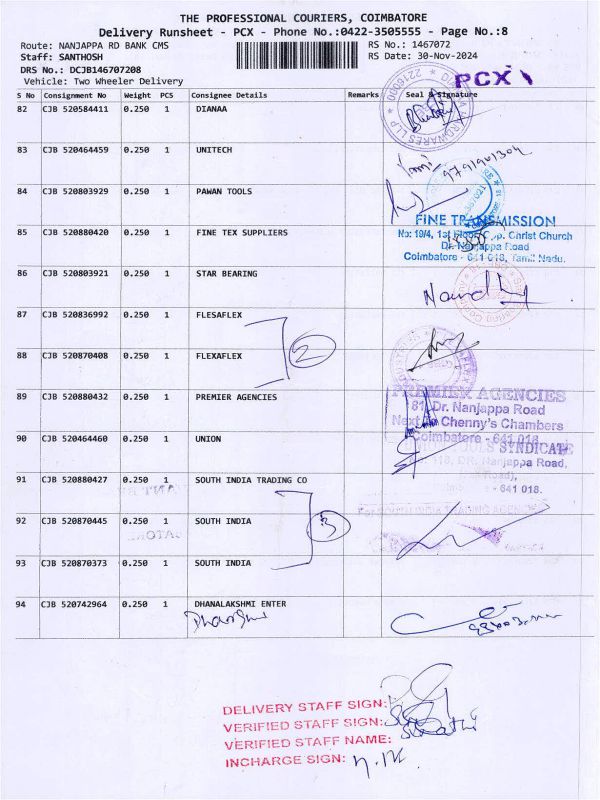 THE PROFESSIONAL COURIERS, COIMBATORE
Delivery Runsheet - PCX - Phone No.:0422-3505555 - Page No.:8
Route: NANJAPPA RD BANK CMS RS No.: 1467072
Staff: SANTHOSH RS Date: 30-Nov-2024
DRS No.: DCJB146707208
Vehicle: Two Wheeler Delivery
PCX
S No Consignment No Weight PCS Consignee Details Remarks Seal & Signature
82 CJB 520584411 0.250 1 DIANAA
83 CJB 520464459 0.250 1 UNITECH
84 CJB 520803929 0.250 1 PAWAN TOOLS
FINE TRANSMISSION
85 CJB 520880420 0.250 1 FINE TEX SUPPLIERS
No: 19/4, 1st Floor, Opp. Christ Church
Dr. Nanjappa Road
Coimbatore - 641 018, Tamil Nadu.
86 CJB 520803921 0.250 1 STAR BEARING
87 CJB 520836992 0.250 1 FLESAFLEX
2
88 CJB 520870408 0.250 1 FLEXAFLEX
89 CJB 520880432 0.250 1 PREMIER AGENCIES
PREMIER AGENCIES
81, Dr. Nanjappa Road
Next To Chenny's Chambers
Coimbatore - 641 018
90 CJB 520464460 0.250 1 UNION
SYNDICATE
Nanjappa Road,
- 641 018.
91 CJB 520880427 0.250 1 SOUTH INDIA TRADING CO
For SOUTH INDIA TRADING AGENCY
92 CJB 520870445 0.250 1 SOUTH INDIA
3
93 CJB 520870373 0.250 1 SOUTH INDIA
94 CJB 520742964 0.250 1 DHANALAKSHMI ENTER
DELIVERY STAFF SIGN:
VERIFIED STAFF SIGN:
VERIFIED STAFF NAME:
INCHARGE SIGN: